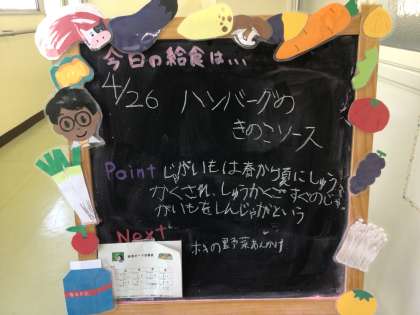 今日の給食は...
4/26 ハンバーグの
きのこソース
Point じゃがいもは春から夏にしゅう
かくされ、しゅうかくすぐのじゃ
がいもをしんじゃがという
Next
ホキの野菜あんかけ